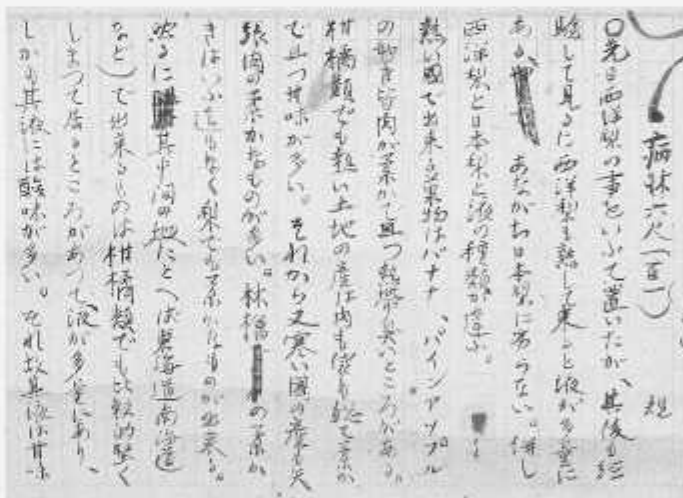 病牀六尺(百一) 規
〇先日西洋梨の事をいふて置いたが、其後も経
験して見るに西洋梨も熟して来ると液が多量に
あるが あながち日本梨に劣らない。併し
西洋梨と日本梨と液の種類が違ふ。
熱い国で出来る菓物はバナナ、パインアツプル
の如き皆肉が柔かで且つ熱帯臭いところがある。
柑橘類でも熱い土地の産は肉も袋も総て柔か
で且つ甘味が多い。それから又寒い国の産も矢
張肉の柔かなものが多い。林檎の柔か
きはいふ迄もなく梨でも柔かなものが出来る。
然るに其中間の地(たとへば東海道南海道
など)で出来るものは柑橘類でも比較的堅く
しまつて居るところがあつて、液が多量にあり、
しかも其液には酸味が多い。それ故其液は甘味